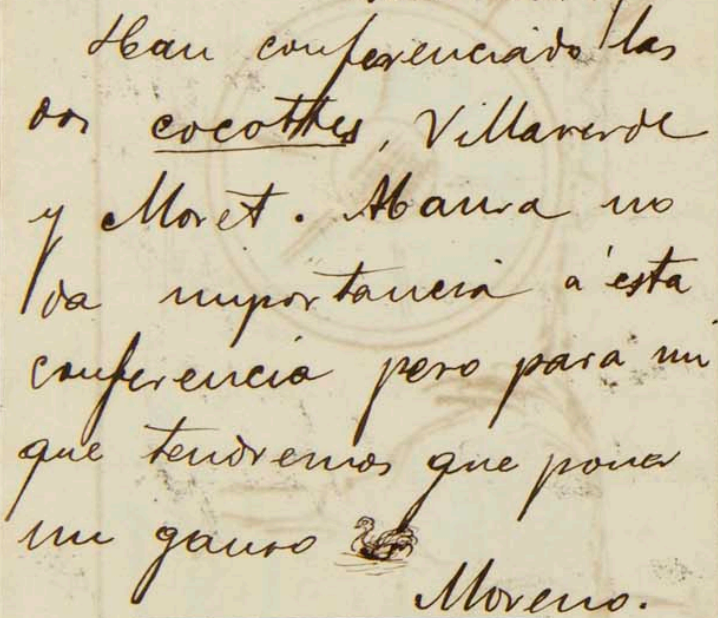 Han conferenciado las
dos cocottes, Villaverde
y Moret. Maura no
da importancia a esta
conferencia pero para mi
que tendremos que poner
un ganso
Moreno.